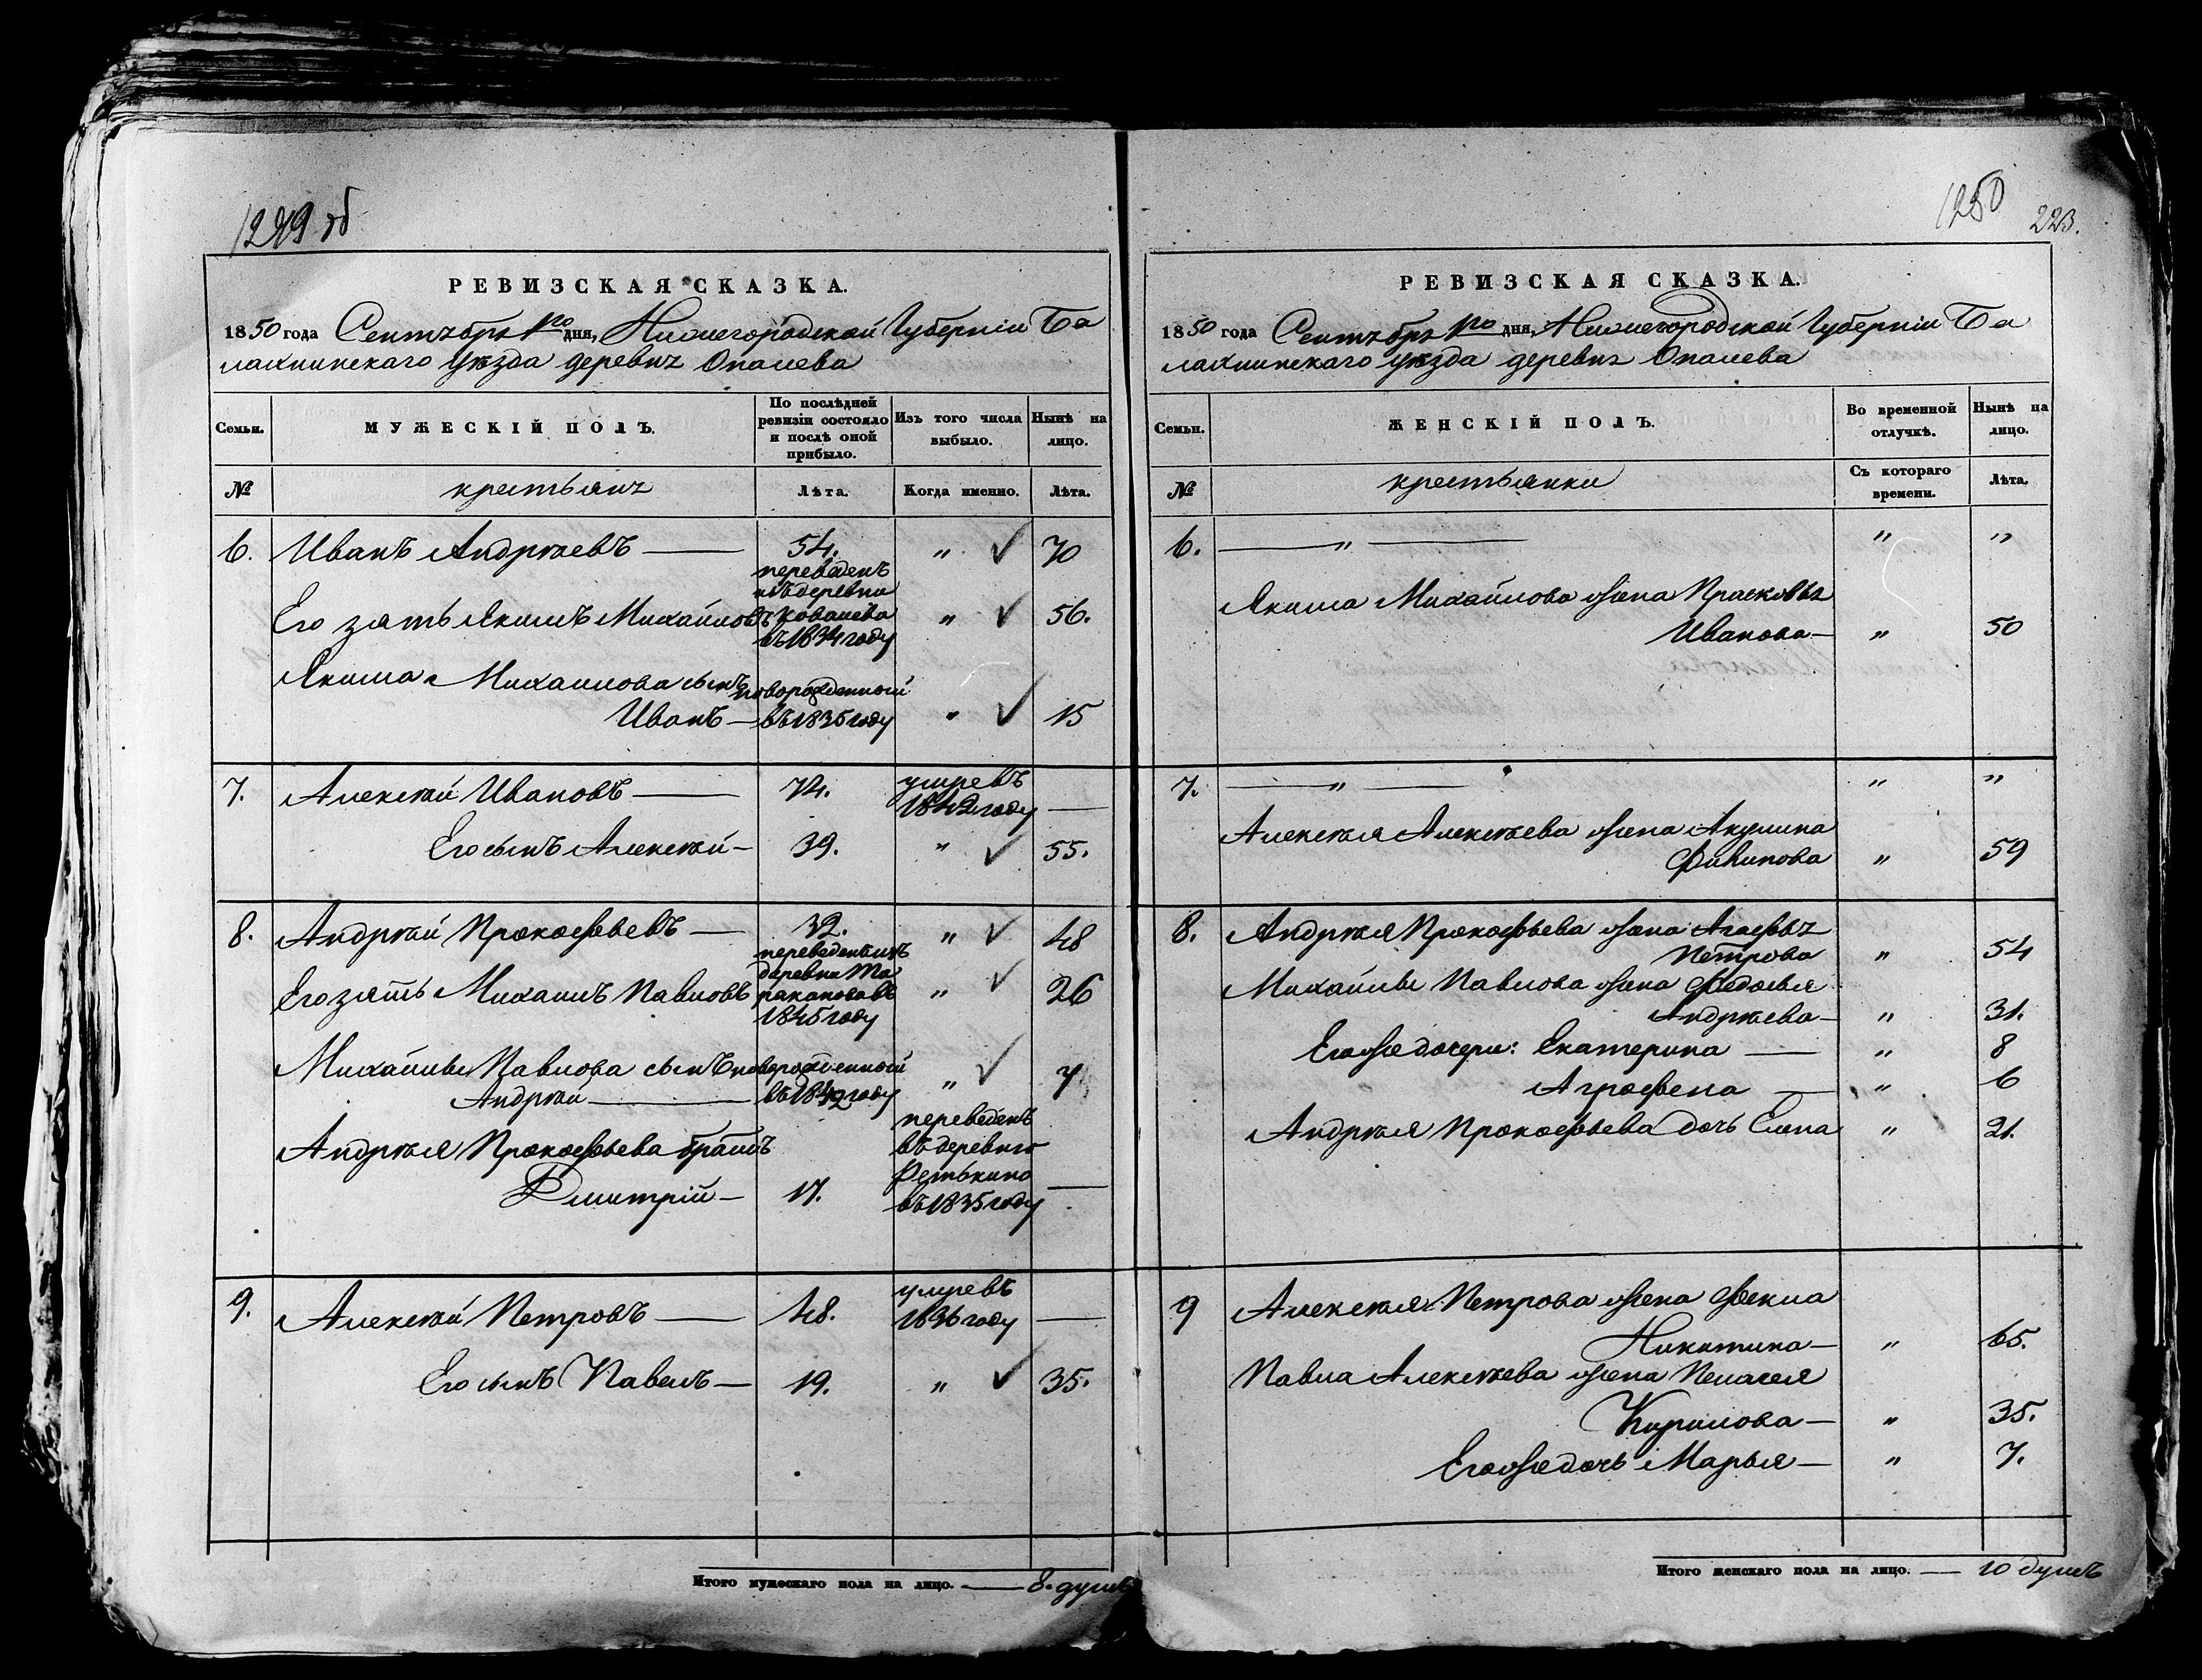 1249 об
РЕВИЗСКАЯ СКАЗКА.
1850 года Сентября 1го дня, Нижегородской Губерніи Ба
лахнинскаго Уѣзда деревни Опалева
Семьи.
МУЖЕСКІЙ ПОЛЪ.
По послѣдней ревизіи состояло и послѣ оной прибыло.
Изъ того числа выбыло.
Нынѣ на лицо.
№
крестьянъ
Лѣта.
Когда именно.
Лѣта.
6. Иванъ Андрѣевъ — 54. „ 70
переведенъ
изъ деревни
Его зять Якимъ Михайловъ Ковалева „ 56.
въ 1834 году
Якима Михайлова сынъ новорожденной
Иванъ — въ 1835 году „ 15
7. Алексѣй Ивановъ — 74. умре въ
1842 году —
Его сынъ Алексѣй — 39. „ 55.
8. Андрѣй Прокофьевъ — 32. „ 48
переведенъ изъ
деревни Та
Его зять Михаилъ Павловъ раканова въ „ 26
1845 году
Михайлы Павлова сынъ новорожденной
Андрѣй — въ 1842 году „ 7
переведенъ
Андрѣя Прокофьева братъ въ деревню
Ретькино
Дмитрій — 17. въ 1835 году —
9. Алексѣй Петровъ — 48. умре въ
1836 году —
Его сынъ Павелъ — 19. „ 35.
Итого мужескаго пола на лицо. — 8. душъ
1250
223.
РЕВИЗСКАЯ СКАЗКА.
1850 года Сентября 1го дня, Нижегородской Губерніи Ба
лахнинскаго Уѣзда деревни Опалева
Семьи.
ЖЕНСКІЙ ПОЛЪ.
Во временной отлучкѣ.
Нынѣ на лицо.
№
крестьянки
Съ котораго времени.
Лѣта.
6. — „ — „ „
Якима Михайлова жена Прасковья
Иванова — „ 50
7. — „ — „ „
Алексѣя Алексѣева жена Акулина
Филипова „ 59
8. Андрѣя Прокофьева жена Агафья
Петрова „ 54
Михайлы Павлова жена Федосья
Андрѣева — „ 31.
Егожедочери: Екатерина — „ 8
Аграфена — „ 6
Андрѣя Прокофьева дочь Елена „ 21.
9 Алексѣя Петрова жена Фекла
Никитина — „ 65.
Павла Алексѣева жена Пелагея
Кирилова — „ 35.
Егоже дочь Марья — „ 7.
Итого женскаго пола на лицо. — 10 душъ